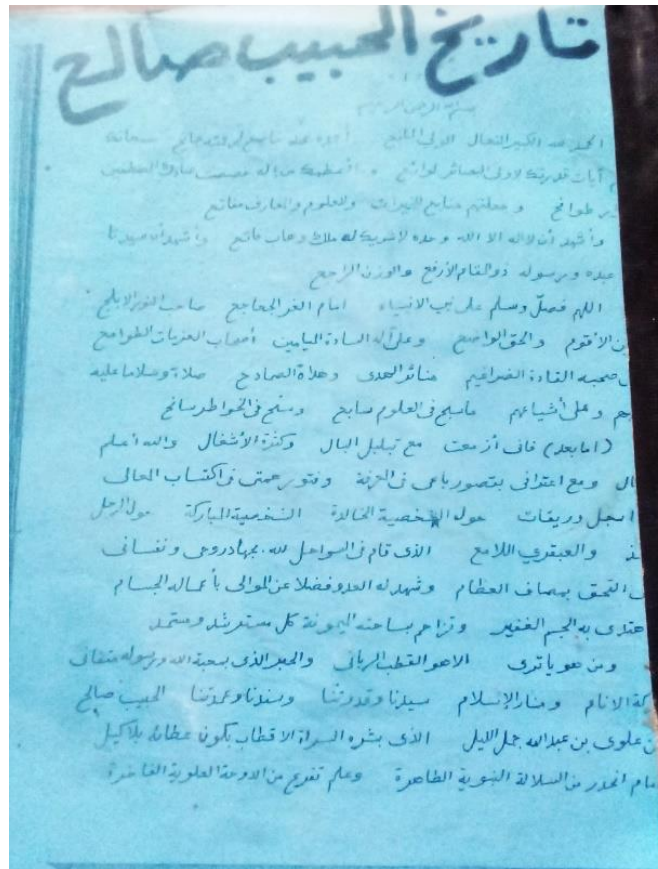 تاريخ الحبيب صالح
بسم الله الرحمن الرحيم
الحمد لله الكبير المتعال الولي المانح أحمده سبحانه
آيات قدرتك لأولى البصائر لوائح
طوافح وجعلتهم منابع للخيرات وللعلوم والمعارف مفاتح
وأشهد أن لا إله إلا الله وحده لا شريك له ملك وهاب مانح وأشهد أن سيدنا
عبده ورسوله ذو المقام الأرفع والوزن الراجح
اللهم فصل وسلم على نبي الأنبياء إمام الغر الجحاجح صاحب النور الأبلج
الأقوم والحق الواضح وعلى آله السادة الميامين أصحاب العزمات الطوامح
صحبه القادة الضراغيم منائر الهدى وهداة الصلاة وسلاما عليه
وعلى أشياعهم ما سبح في العلوم سابح وسنح في الخواطر سانح
(أما بعد) فإني أزمعت مع تبلبل البال وكثرة الأشغال والله أعلم
ومع اعترافي بقصور باعي في المعرفة وفتور همتي في اكتساب المعالي
اسجل وريقات حول الشخصية الخالدة الشخصية المباركة حول الرجل
والعبقري اللامع الذي قام في السواحل لله بجهاد روحي ونفساني
التحق بمصاف العظام وشهد له العدو فضلا عن الموالى بأعماله الجسام
اهتدى به الجم الغفير وتزاحم بساحته الميمونة كل مسترشد ومستمد
ومن هو يا ترى الا هو القطب الرباني والحبر الذي بمحبة الله ورسوله متفاني
الانام ومنار الإسلام سيدنا وقدوتنا وسندنا وعمدتنا الحبيب صالح
بن علوي بن عبدالله جمل الليل الذي بشره السراة الاقطاب بكون عطائه بلا كيل
امام انحدر من السلالة النبوية الطاهرة وعلم تفرع من الدوحة العلوية الفاخرة